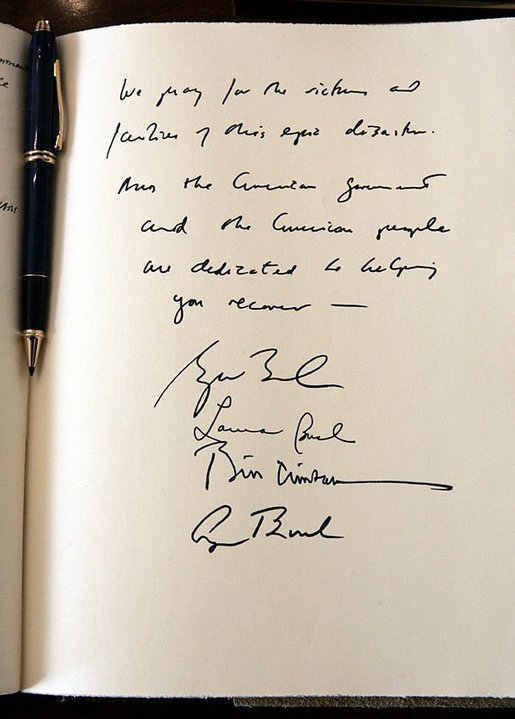 We pray for the victims and
families of this epic disaster.
the American government
and the American people
are dedicated to helping
you recover —
Laura Bush
Bill Clinton
G Bush